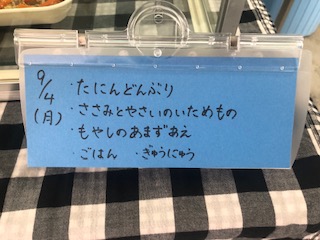 9/4 ・たにんどんぶり
(月) ・ささみとやさいのいためもの
・もやしのあまずあえ
・ごはん ・ぎゅうにゅう